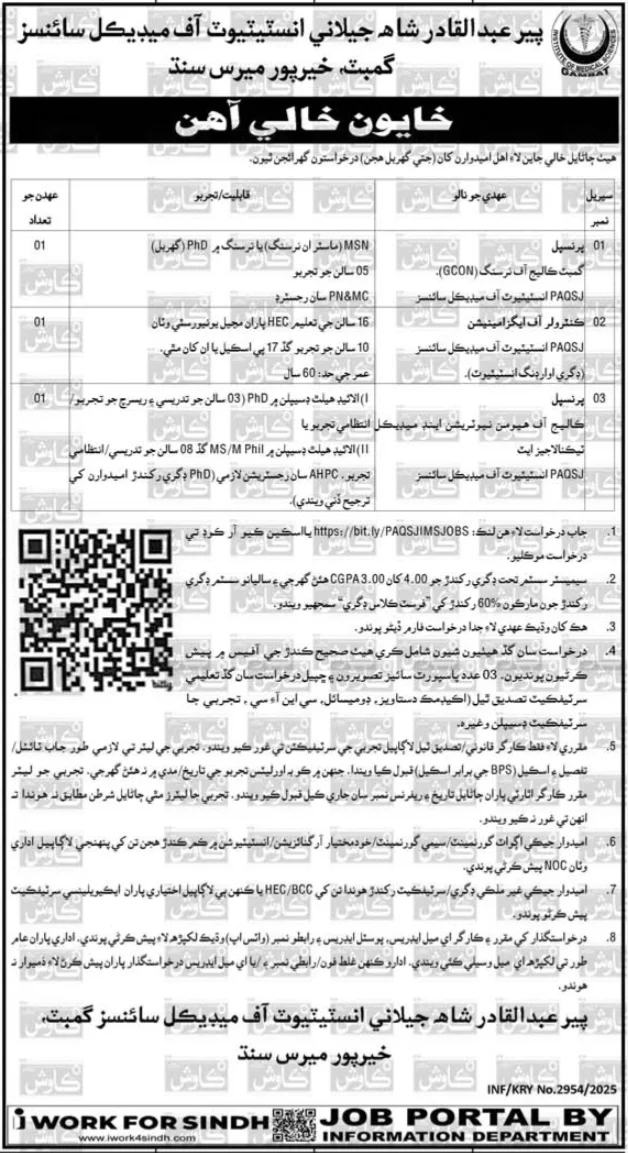 پير عبدالقادر شاھ جيلاني انسٽيٽيوٽ آف ميڊيڪل سائنسز
گمبٽ، خيرپور ميرس سنڌ
INSTITUTE OF MEDICAL SCIENCES
GAMBAT
خايون خالي آهن
هيٺ ڄاڻايل خالي جاين لاءِ اهل اميدوارن کان (جتي گهربل هجن) درخواستون گهرائجن ٿيون.
سيريل نمبر
عهدي جو نالو
قابليت/تجربو
عهدن جو تعداد
01
پرنسپل
گمبٽ ڪاليج آف نرسنگ (GCON).
PAQSJ انسٽيٽيوٽ آف ميڊيڪل سائنسز
MSN (ماسٽر ان نرسنگ) يا نرسنگ ۾ PhD (گهربل)
05 سالن جو تجربو
PN&MC سان رجسٽرڊ
01
02
ڪنٽرولر آف ايگزامينيشن
PAQSJ انسٽيٽيوٽ آف ميڊيڪل سائنسز
(ڊگري اوارڊنگ انسٽيٽيوٽ).
16 سالن جي تعليم HEC پاران مڃيل يونيورسٽي وٽان
10 سالن جو تجربو گڏ 17 پي اسڪيل يا ان کان مٿي.
عمر جي حد: 60 سال
01
03
پرنسپل
ڪاليج آف هيومن نيوٽريشن اينڊ ميڊيڪل
ٽيڪنالاجيز ايٽ
PAQSJ انسٽيٽيوٽ آف ميڊيڪل سائنسز
I) الائيڊ هيلٿ ڊسيپلن ۾ PhD (03 سالن جو تدريسي ۽ ريسرچ جو تجربو/
انتظامي تجربو يا
II) الائيڊ هيلٿ ڊسيپلن ۾ MS/M Phil گڏ 08 سالن جو تدريسي/انتظامي
تجربو. AHPC سان رجسٽريشن لازمي (PhD ڊگري رکندڙ اميدوارن کي
ترجيح ڏني ويندي).
01
1. جاب درخواست لاءِ هن لنڪ: https://bit.ly/PAQSJIMSJOBS يا اسڪين ڪيو آر ڪوڊ تي
درخواست موڪليو.
2. سيميسٽر سسٽم تحت ڊگري رکندڙ جو 4.00 کان CGPA 3.00 هئڻ گهرجي ۽ ساليانو سسٽم ڊگري
رکندڙ جون مارڪون 60% رکندڙ کي "فرسٽ ڪلاس ڊگري" سمجهيو ويندو.
3. هڪ کان وڌيڪ عهدي لاءِ جدا درخواست فارم ڏيڻو پوندو.
4. درخواست سان گڏ هيٺيون شيون شامل ڪري هيٺ صحيح ڪندڙ جي آفيس ۾ پيش
ڪرڻيون پونديون. 03 عدد پاسپورٽ سائيز تصويرون ۽ ڇپيل درخواست سان گڏ تعليمي
سرٽيفڪيٽ تصديق ٿيل (اڪيڊمڪ دستاويز، ڊوميسائل، سي اين آءِ سي، تجربي جا
سرٽيفڪيٽ ڊسيپلن وغيره.
5. مقرري لاءِ فقط ڪارگر قانوني/تصديق ٿيل لاڳاپيل تجربي جي سرٽيفڪيٽن تي غور ڪيو ويندو. تجربي جي ليٽر تي لازمي طور جاب ٽائٽل/
تفصيل ۽ اسڪيل (BPS جي برابر اسڪيل) قبول ڪيا ويندا. جنهن ۾ ڪو به اورليٽس تجربو جي تاريخ/مدي ۾ نه هئڻ گهرجي. تجربي جو ليٽر
مقرر ڪارگر اٿارٽي پاران ڄاڻايل تاريخ ۽ ريفرنس نمبر سان جاري ڪيل قبول ڪيو ويندو. تجربي جا ليٽرز مٿي ڄاڻايل شرطن مطابق نه هوندا ته
انهن تي غور نه ڪيو ويندو.
6. اميدوار جيڪي اڳواٽ گورنمينٽ/سيمي گورنمينٽ/خودمختيار آرگنائزيشن/انسٽيٽيوشن ۾ ڪم ڪندڙ هجن تن کي پنهنجي لاڳاپيل اداري
وٽان NOC پيش ڪرڻي پوندي.
7. اميدوار جيڪي غير ملڪي ڊگري/سرٽيفڪيٽ رکندڙ هوندا تن کي HEC/BCC يا ڪنهن ٻي لاڳاپيل اختياري پاران ايڪيوليننسي سرٽيفڪيٽ
پيش ڪرڻو پوندو.
8. درخواستگذار کي مقرر ۽ ڪارگر اي ميل ايڊريس، پوسٽل ايڊريس ۽ رابطو نمبر (واٽس اپ) وڌيڪ لکپڙھ لاءِ پيش ڪرڻي پوندي. اداري پاران عام
طور تي لکپڙھ اي ميل وسيلي ڪئي ويندي. ادارو ڪنهن غلط فون/رابطي نمبر ۽ /يا اي ميل ايڊريس درخواستگذار پاران پيش ڪرڻ لاءِ ذميوار نه
هوندو.
پير عبدالقادر شاھ جيلاني انسٽيٽيوٽ آف ميڊيڪل سائنسز گمبٽ،
خيرپور ميرس سنڌ
INF/KRY No.2954/2025
i WORK FOR SINDH
www.iwork4sindh.com
JOB PORTAL BY
INFORMATION DEPARTMENT